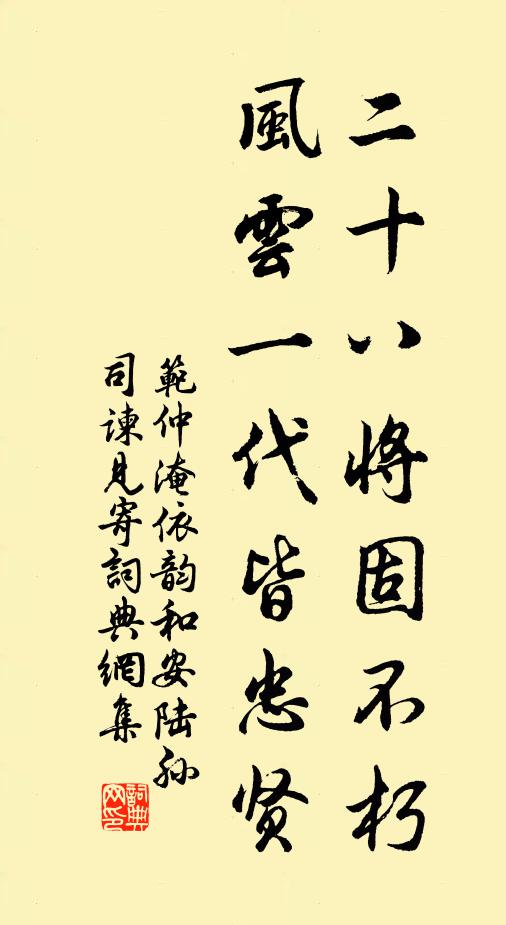 二十八將固不朽
風雲一代皆忠贤
範仲淹依韵和安陆孙
司諫見寄詞典網集
詞典
网印